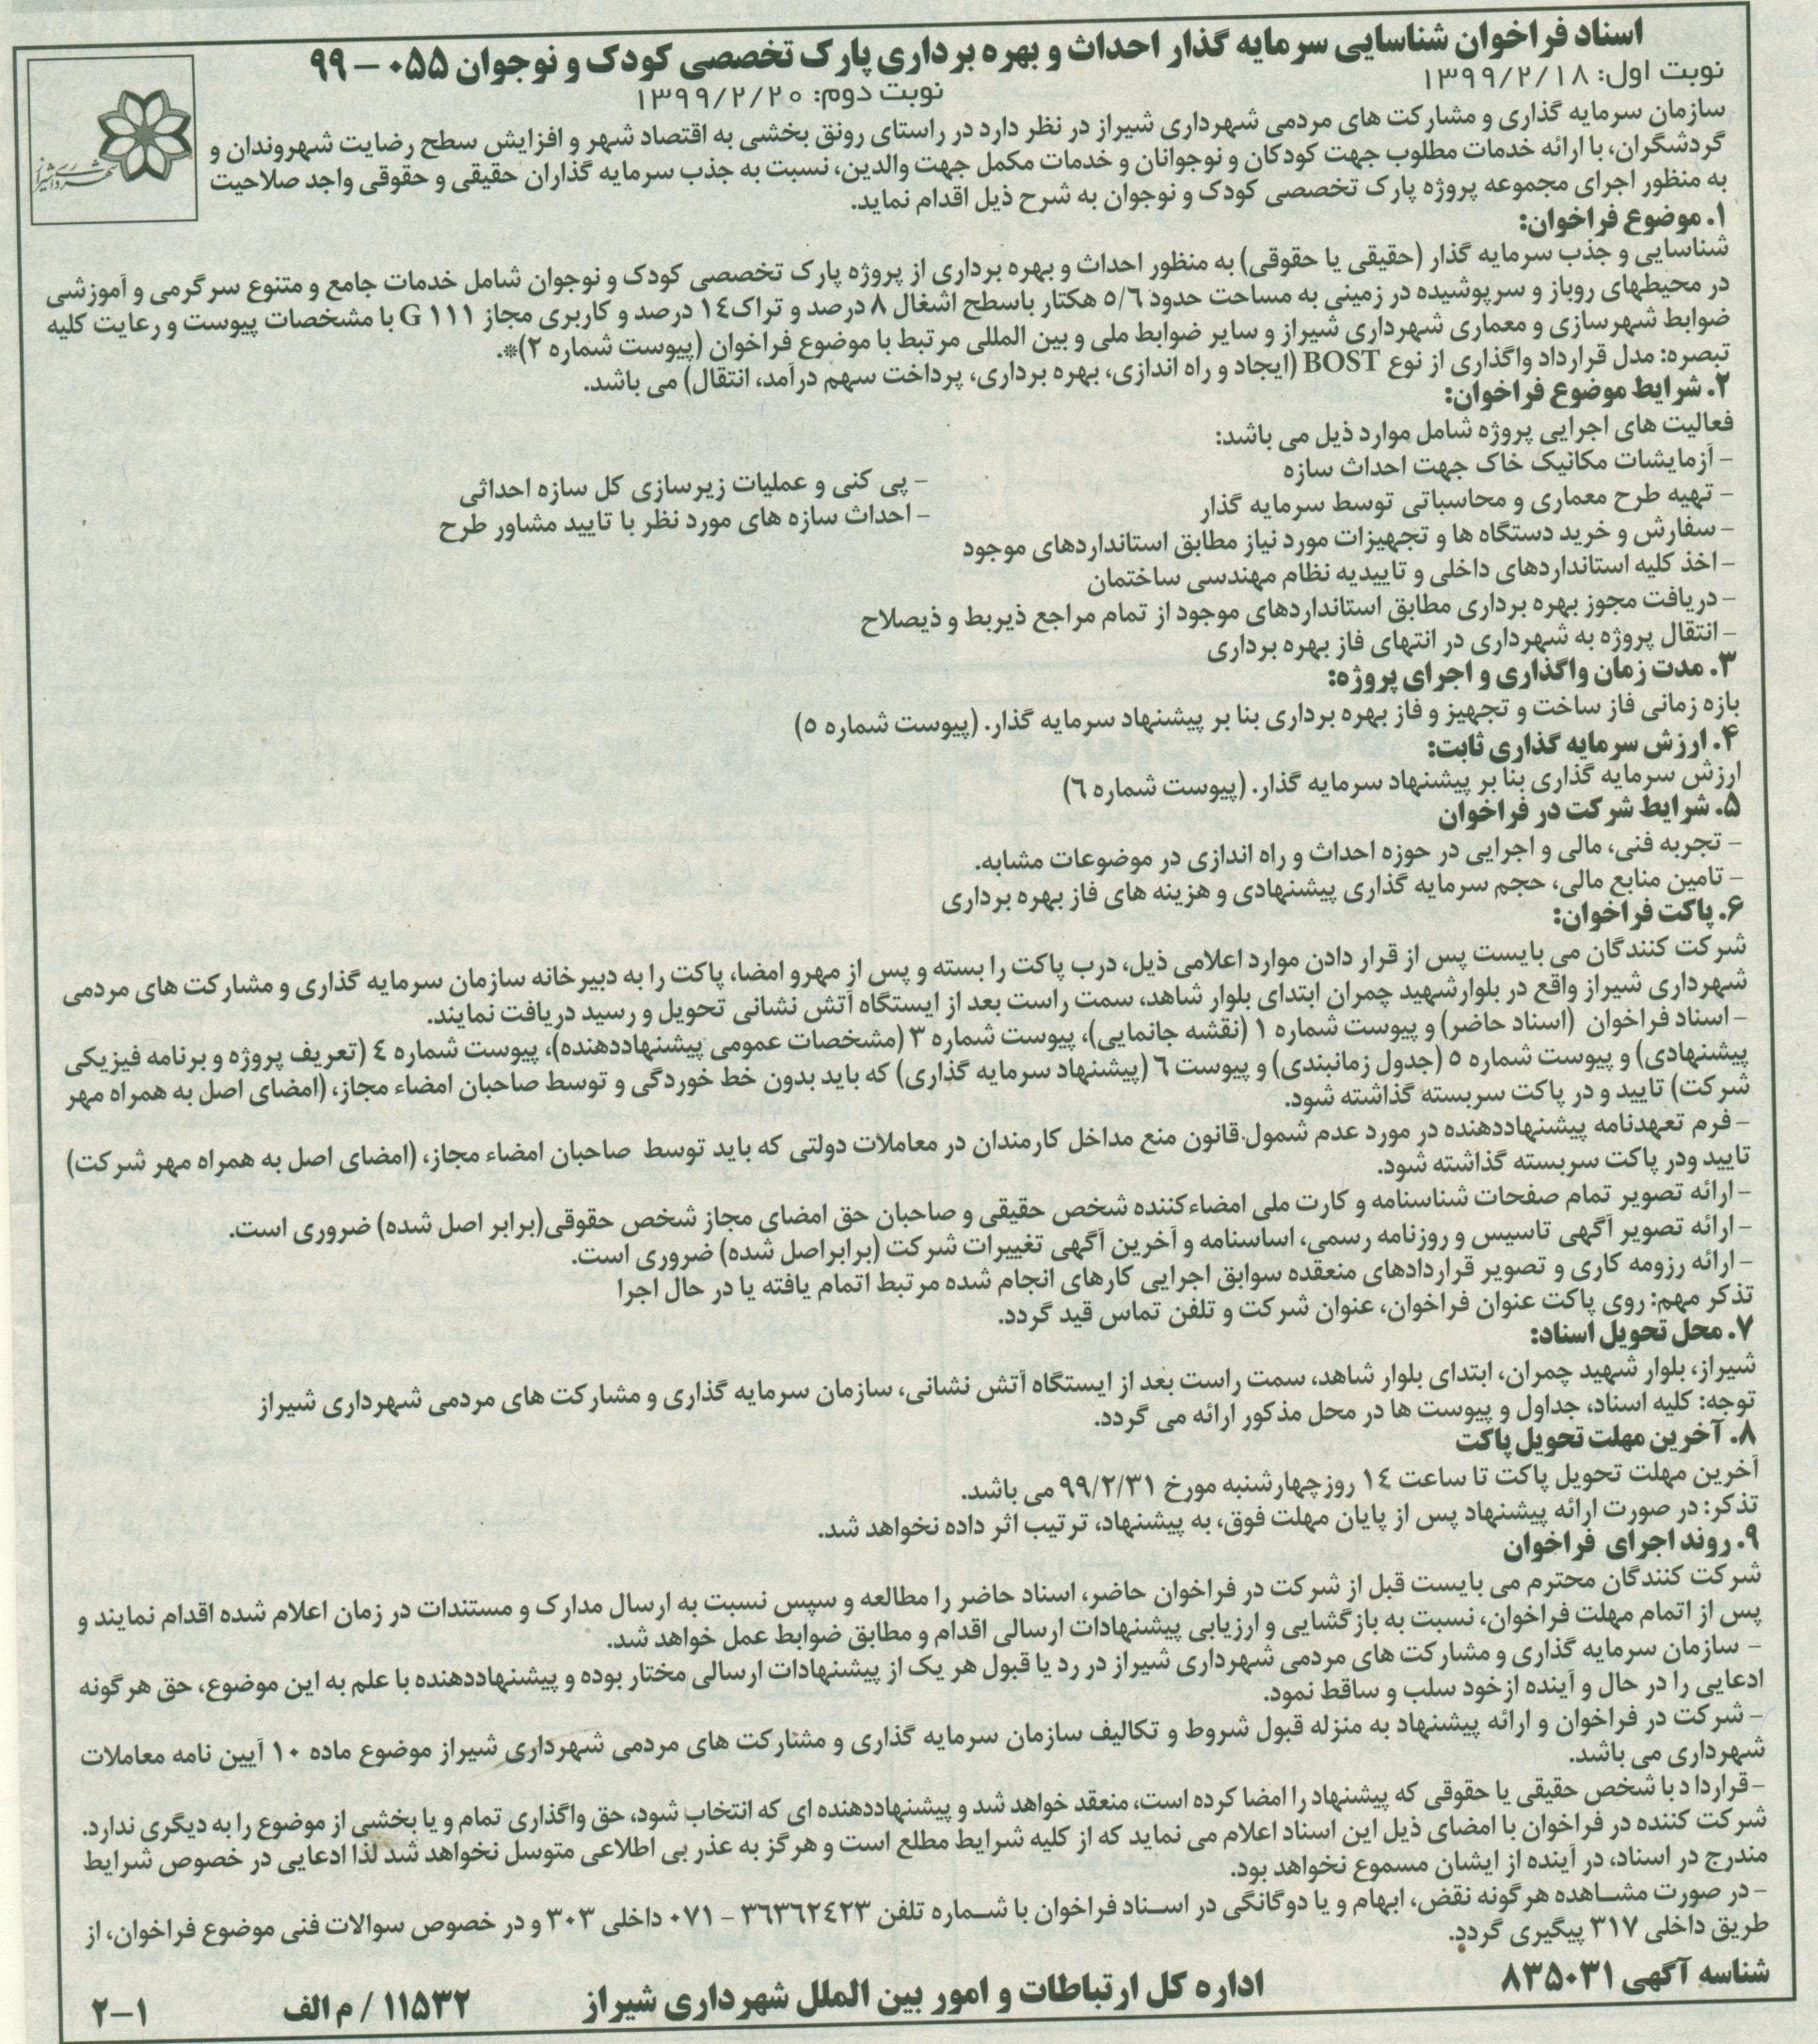 اسناد فراخوان شناسایی سرمایه گذار احداث و بهره برداری پارک تخصصی کودک و نوجوان ۰۵۵ – ۹۹
نوبت اول: ۱۳۹۹/۲/۱۸
نوبت دوم: ۱۳۹۹/۲/۲۰
شهرداری شیراز
سازمان سرمایه گذاری و مشارکت های مردمی شهرداری شیراز در نظر دارد در راستای رونق بخشی به اقتصاد شهر و افزایش سطح رضایت شهروندان و
گردشگران، با ارائه خدمات مطلوب جهت کودکان و نوجوانان و خدمات مکمل جهت والدین، نسبت به جذب سرمایه گذاران حقیقی و حقوقی واجد صلاحیت
به منظور اجرای مجموعه پروژه پارک تخصصی کودک و نوجوان به شرح ذیل اقدام نماید.
۱. موضوع فراخوان:
شناسایی و جذب سرمایه گذار (حقیقی یا حقوقی) به منظور احداث و بهره برداری از پروژه پارک تخصصی کودک و نوجوان شامل خدمات جامع و متنوع سرگرمی و آموزشی
در محیطهای روباز و سرپوشیده در زمینی به مساحت حدود ۵/۶ هکتار باسطح اشغال ۸ درصد و تراک۱۴ درصد و کاربری مجاز G ۱۱۱ با مشخصات پیوست و رعایت کلیه
ضوابط شهرسازی و معماری شهرداری شیراز و سایر ضوابط ملی و بین المللی مرتبط با موضوع فراخوان (پیوست شماره ۲)*.
تبصره: مدل قرارداد واگذاری از نوع BOST (ایجاد و راه اندازی، بهره برداری، پرداخت سهم درآمد، انتقال) می باشد.
۲. شرایط موضوع فراخوان:
فعالیت های اجرایی پروژه شامل موارد ذیل می باشد:
– آزمایشات مکانیک خاک جهت احداث سازه
– پی کنی و عملیات زیرسازی کل سازه احداثی
– تهیه طرح معماری و محاسباتی توسط سرمایه گذار
– احداث سازه های مورد نظر با تایید مشاور طرح
– سفارش و خرید دستگاه ها و تجهیزات مورد نیاز مطابق استانداردهای موجود
– اخذ کلیه استانداردهای داخلی و تاییدیه نظام مهندسی ساختمان
– دریافت مجوز بهره برداری مطابق استانداردهای موجود از تمام مراجع ذیربط و ذیصلاح
– انتقال پروژه به شهرداری در انتهای فاز بهره برداری
۳. مدت زمان واگذاری و اجرای پروژه:
بازه زمانی فاز ساخت و تجهیز و فاز بهره برداری بنا بر پیشنهاد سرمایه گذار. (پیوست شماره ۵)
۴. ارزش سرمایه گذاری ثابت:
ارزش سرمایه گذاری بنا بر پیشنهاد سرمایه گذار. (پیوست شماره ۶)
۵. شرایط شرکت در فراخوان
– تجربه فنی، مالی و اجرایی در حوزه احداث و راه اندازی در موضوعات مشابه.
– تامین منابع مالی، حجم سرمایه گذاری پیشنهادی و هزینه های فاز بهره برداری
۶. پاکت فراخوان:
شرکت کنندگان می بایست پس از قرار دادن موارد اعلامی ذیل، درب پاکت را بسته و پس از مهرو امضا، پاکت را به دبیرخانه سازمان سرمایه گذاری و مشارکت های مردمی
شهرداری شیراز واقع در بلوارشهید چمران ابتدای بلوار شاهد، سمت راست بعد از ایستگاه آتش نشانی تحویل و رسید دریافت نمایند.
– اسناد فراخوان (اسناد حاضر) و پیوست شماره ۱ (نقشه جانمایی)، پیوست شماره ۳ (مشخصات عمومی پیشنهاددهنده)، پیوست شماره ۴ (تعریف پروژه و برنامه فیزیکی
پیشنهادی) و پیوست شماره ۵ (جدول زمانبندی) و پیوست ۶ (پیشنهاد سرمایه گذاری) که باید بدون خط خوردگی و توسط صاحبان امضاء مجاز، (امضای اصل به همراه مهر
شرکت) تایید و در پاکت سربسته گذاشته شود.
– فرم تعهدنامه پیشنهاددهنده در مورد عدم شمول قانون منع مداخل کارمندان در معاملات دولتی که باید توسط صاحبان امضاء مجاز، (امضای اصل به همراه مهر شرکت)
تایید ودر پاکت سربسته گذاشته شود.
– ارائه تصویر تمام صفحات شناسنامه و کارت ملی امضاءکننده شخص حقیقی و صاحبان حق امضای مجاز شخص حقوقی(برابر اصل شده) ضروری است.
– ارائه تصویر آگهی تاسیس و روزنامه رسمی، اساسنامه و آخرین آگهی تغییرات شرکت (برابراصل شده) ضروری است.
– ارائه رزومه کاری و تصویر قراردادهای منعقده سوابق اجرایی کارهای انجام شده مرتبط اتمام یافته یا در حال اجرا
تذکر مهم: روی پاکت عنوان فراخوان، عنوان شرکت و تلفن تماس قید گردد.
۷. محل تحویل اسناد:
شیراز، بلوار شهید چمران، ابتدای بلوار شاهد، سمت راست بعد از ایستگاه آتش نشانی، سازمان سرمایه گذاری و مشارکت های مردمی شهرداری شیراز
توجه: کلیه اسناد، جداول و پیوست ها در محل مذکور ارائه می گردد.
۸. آخرین مهلت تحویل پاکت
آخرین مهلت تحویل پاکت تا ساعت ۱۴ روزچهارشنبه مورخ ۹۹/۲/۳۱ می باشد.
تذکر: در صورت ارائه پیشنهاد پس از پایان مهلت فوق، به پیشنهاد، ترتیب اثر داده نخواهد شد.
۹. روند اجرای فراخوان
شرکت کنندگان محترم می بایست قبل از شرکت در فراخوان حاضر، اسناد حاضر را مطالعه و سپس نسبت به ارسال مدارک و مستندات در زمان اعلام شده اقدام نمایند و
پس از اتمام مهلت فراخوان، نسبت به بازگشایی و ارزیابی پیشنهادات ارسالی اقدام و مطابق ضوابط عمل خواهد شد.
– سازمان سرمایه گذاری و مشارکت های مردمی شهرداری شیراز در رد یا قبول هر یک از پیشنهادات ارسالی مختار بوده و پیشنهاددهنده با علم به این موضوع، حق هرگونه
ادعایی را در حال و آینده ازخود سلب و ساقط نمود.
– شرکت در فراخوان و ارائه پیشنهاد به منزله قبول شروط و تکالیف سازمان سرمایه گذاری و مشارکت های مردمی شهرداری شیراز موضوع ماده ۱۰ آیین نامه معاملات
شهرداری می باشد.
– قراردا د با شخص حقیقی یا حقوقی که پیشنهاد را امضا کرده است، منعقد خواهد شد و پیشنهاددهنده ای که انتخاب شود، حق واگذاری تمام و یا بخشی از موضوع را به دیگری ندارد.
شرکت کننده در فراخوان با امضای ذیل این اسناد اعلام می نماید که از کلیه شرایط مطلع است و هرگز به عذر بی اطلاعی متوسل نخواهد شد لذا ادعایی در خصوص شرایط
مندرج در اسناد، در آینده از ایشان مسموع نخواهد بود.
– در صورت مشاهده هرگونه نقض، ابهام و یا دوگانگی در اسناد فراخوان با شماره تلفن ۳۶۳۶۲۴۲۳ – ۰۷۱ داخلی ۳۰۳ و در خصوص سوالات فنی موضوع فراخوان، از
طریق داخلی ۳۱۷ پیگیری گردد.
شناسه آگهی ۸۳۵۰۳۱
اداره کل ارتباطات و امور بین الملل شهرداری شیراز
۱۱۵۳۲ / م الف
۲–۱